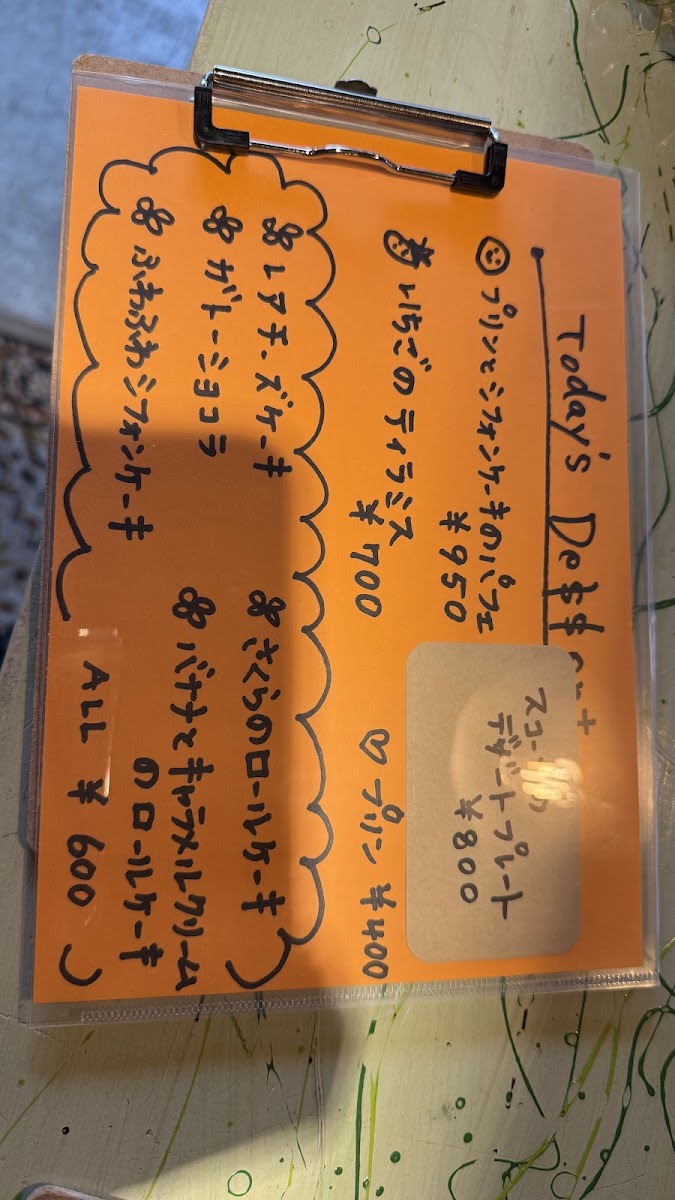 Today's Dessert
プリンとシフォンケーキのパフェ
¥950
スコーンの
デザートプレート
¥800
いちごのティラミス
¥700
♡プリン ¥400
レアチーズケーキ
ガトーショコラ
ふわふわシフォンケーキ
さくらのロールケーキ
バナナとキャラメルクリーム
のロールケーキ
ALL ¥600